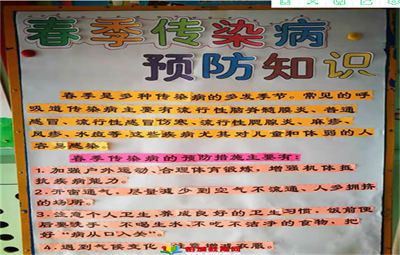 春季传染病
预防知识
春季是多种传染病的多发季节。常见的呼
吸道传染病主要有流行性脑脊髓膜炎、普通
感冒、流行性感冒伤寒、流行性腮腺炎、麻疹、
风疹、水痘等,这些疾病尤其对儿童和体弱的人
容易感染。
春季传染病的预防措施主要有:
1.加强户外运动、合理体育锻炼,增强机体抵
抗疾病能力。
2.开窗通气,尽量减少到空气不流通、人多拥挤
的场所。
3.注意个人卫生,养成良好的卫生习惯,饭前便
后要洗手、不喝生水、不吃不洁净的食物,把
好“病从口入关”。
4.遇到气候变化,注意增减衣服。